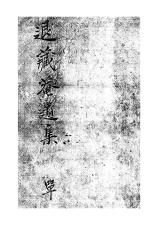 退藏齋遺集
單